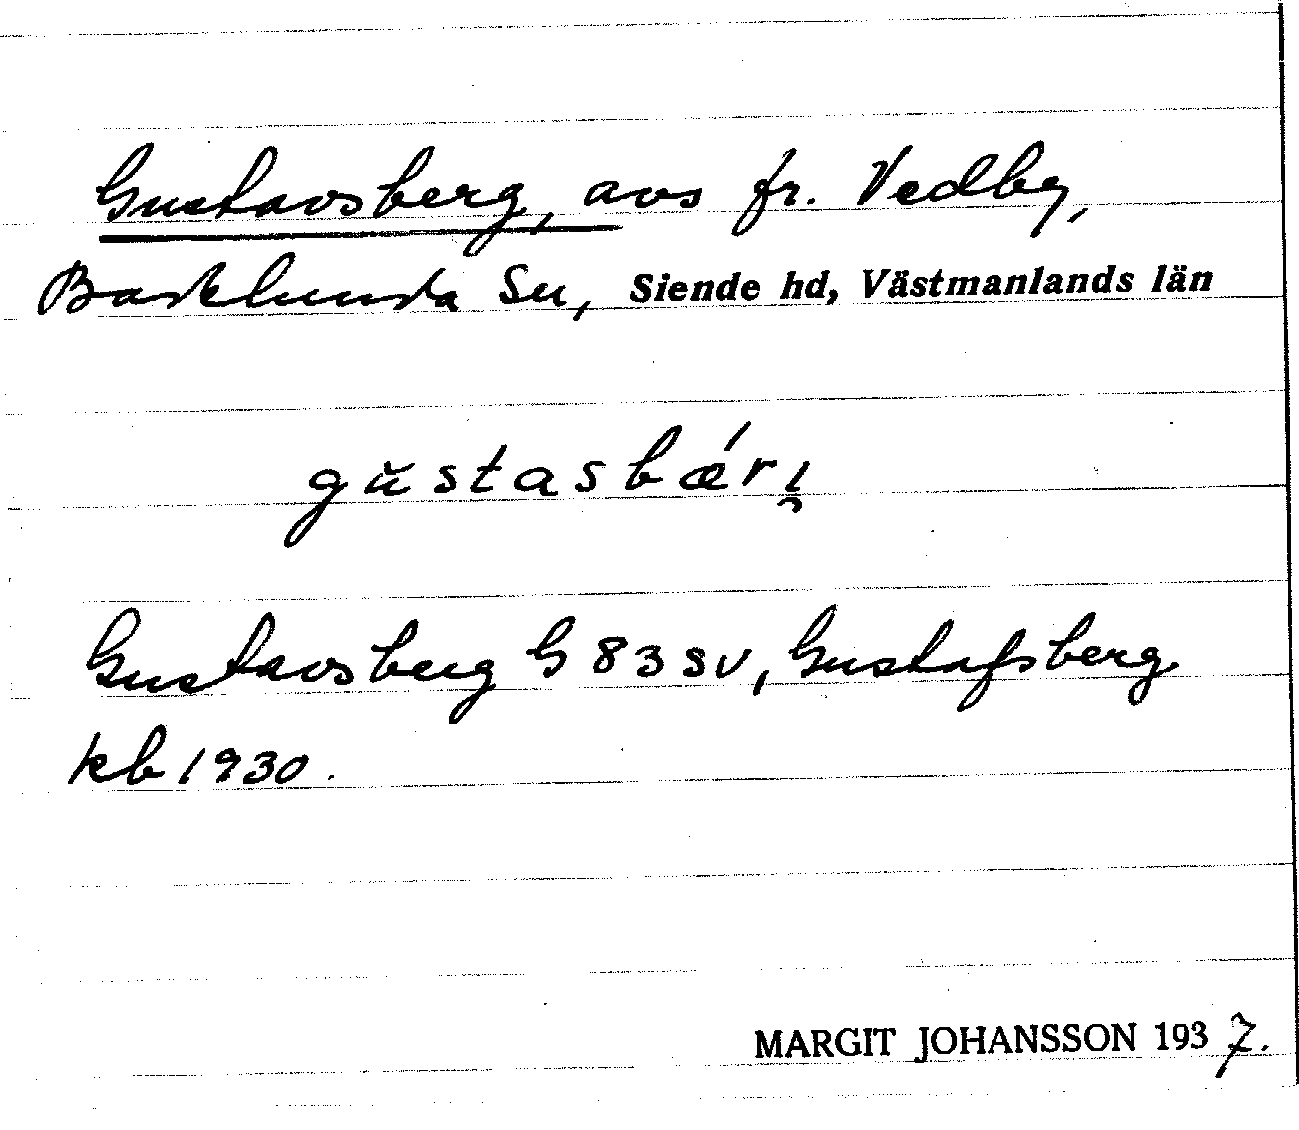 Gustavsberg, avs fr. Vedby,
Badelunda Sn, Siende hd, Västmanlands län
gŭstasbǽri̯
Gustavsberg G 83 SV, Gustafsberg
kb 1930.
MARGIT JOHANSSON 1937.